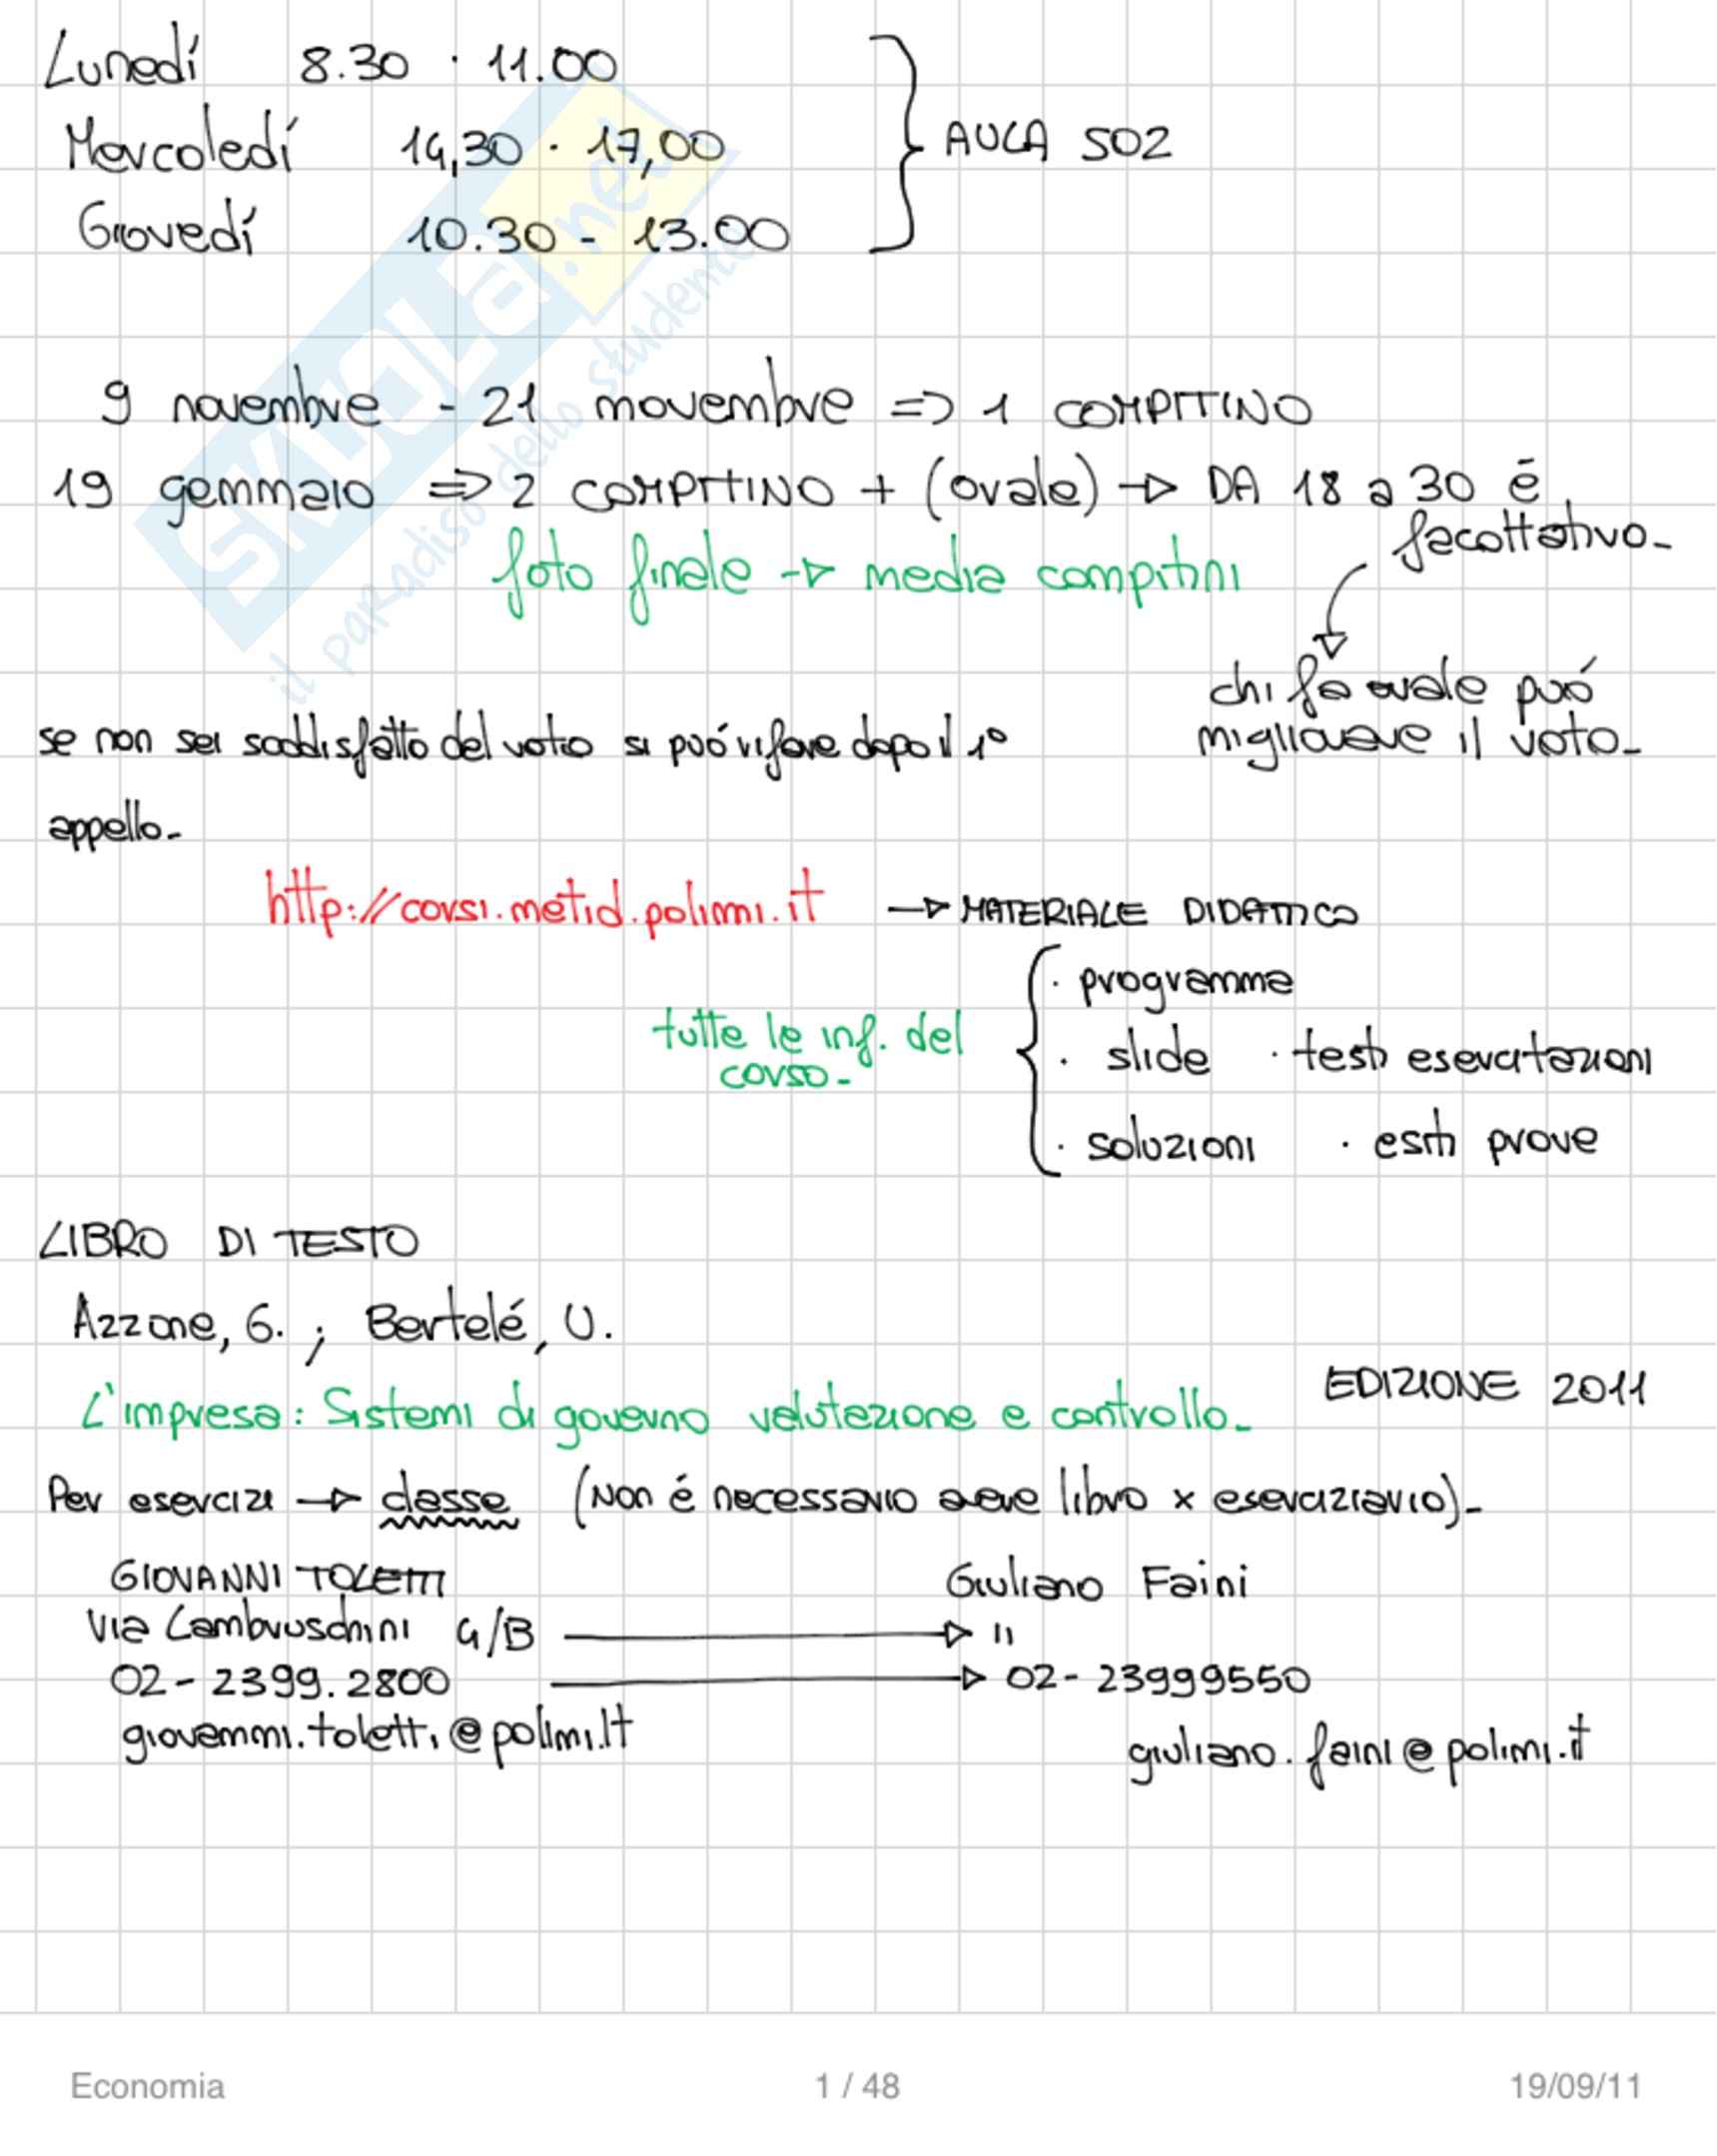 Lunedí 8.30 · 11.00
Mercoledí 14,30 · 17,00
AULA S02
Giovedí 10.30 - 13.00
9 novembre - 21 novembre => 1 COMPITINO
19 gennaio => 2 COMPITINO + (orale) → DA 18 a 30 é
facoltativo_
foto finale → media compitini
chi fa orale puó
migliorare il voto_
se non sei soddisfatto del voto si puó rifare dopo il 1°
appello_
http://corsi.metid.polimi.it → MATERIALE DIDATTICO
· programma
tutte le inf. del
corso_
· slide · testi esercitazioni
· soluzioni · esiti prove
LIBRO DI TESTO
Azzone, G. ; Bertelé, U.
EDIZIONE 2011
L'impresa: Sistemi di governo valutazione e controllo_
Per esercizi → classe (Non é necessario avere libro x eserciziario)_
GIOVANNI TOLETTI Giuliano Faini
Via Lambruschini 4/B → "
02-2399.2800 → 02-23999550
giovanni.toletti@polimi.it
giuliano.faini@polimi.it
SKUOLa.net
il paradiso dello studente
Economia 1 / 48 19/09/11